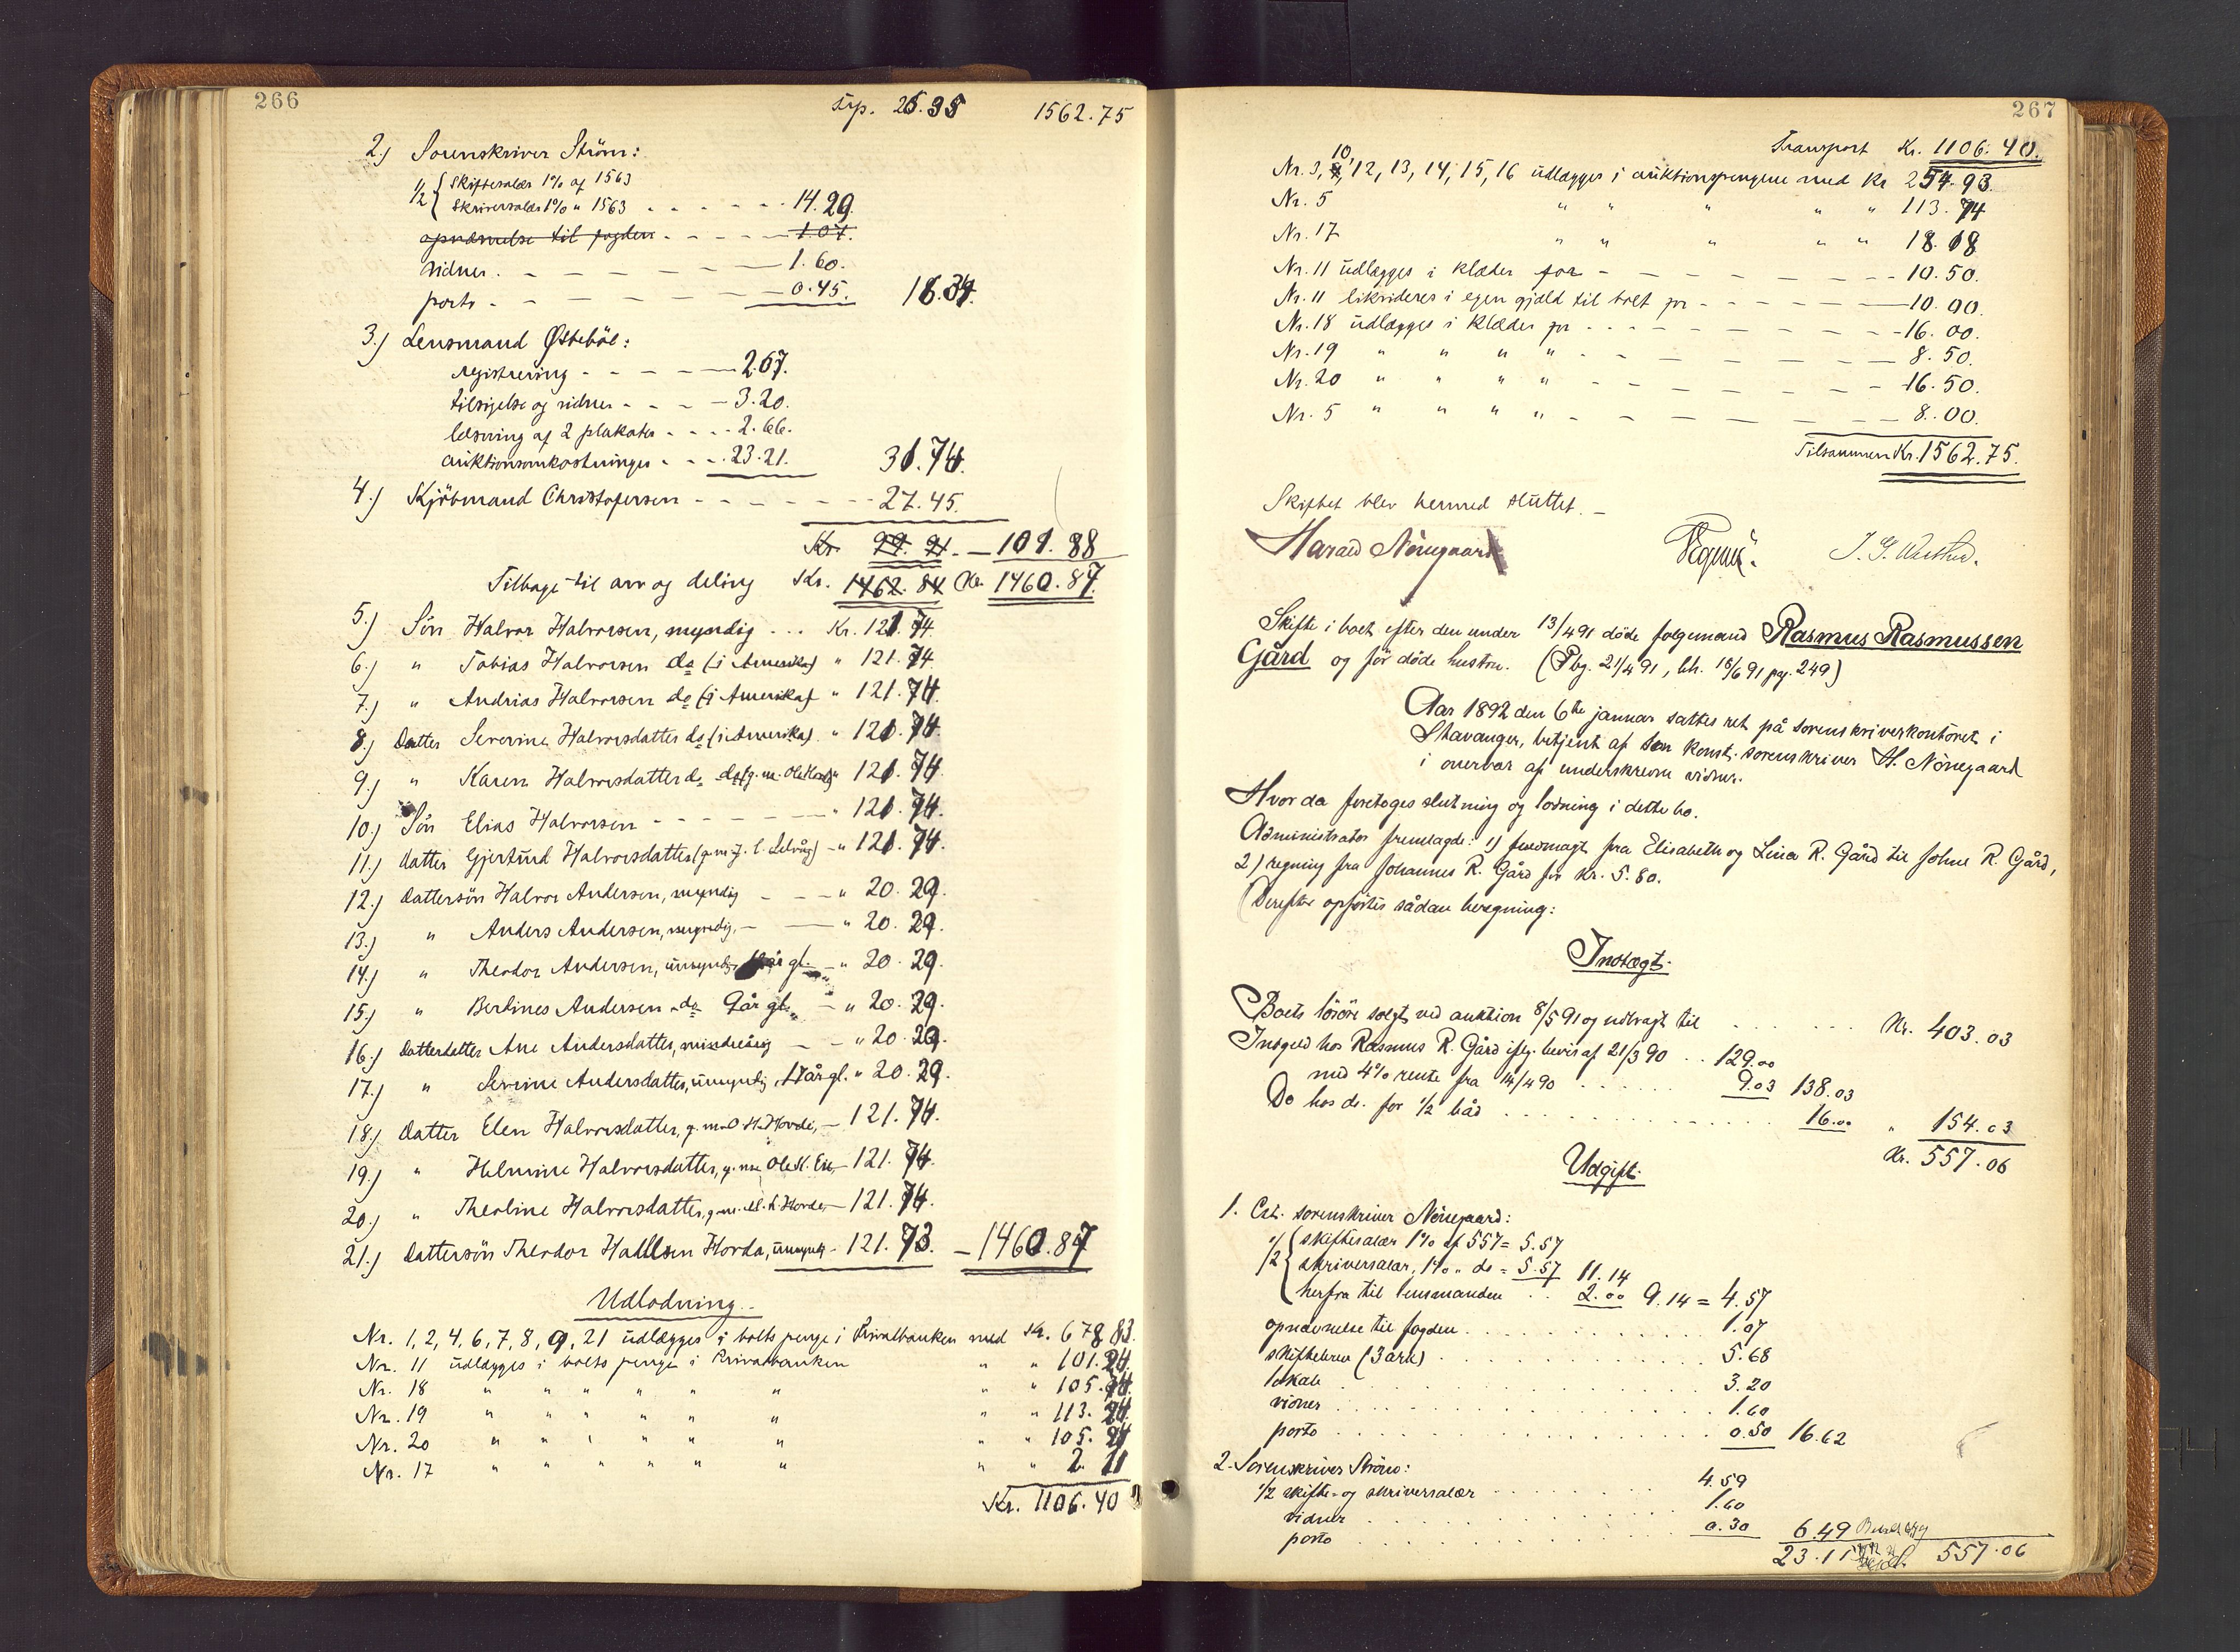 266
Trp. 25.35 1562.75
2.) Sorenskriver Ström:
1/2 { Skiftesalær 1% af 1563
Skriversalær 1% " 1563 - - - - - - 14.29.
opnævnelse til fogden - - - - - 1.07.
vidner. - - - - - - 1.60.
porto - - - - - - 0.45. 16.34.
3.) Lensmand Østeböe:
registrering - - - - - 2.67.
tilsigelse og vidner - - - - 3.20.
læsning af 2 plakater - - - - 2.66.
auktionsomkostninger - - - 23.21. 31.74.
4.) Kjöbmand Christofersen - - - - - - - 27.45.
Kr. 99.91. - 101.88
Tilbage til arv og deling Kr. 1462.84 Kr. 1460.87.
5.) Sön Halvor Halvorsen, myndig ... Kr. 121.74
6.) " Tobias Halvorsen do (i Amerika) " 121.74.
7.) " Andrias Halvorsen do (i Amerika) " 121.74.
8.) Datter Severine Halvorsdatter do (i Amerika) " 121.74.
9.) " Karen Halvorsdatter do (g.m. Ole " 121.74.
10.) Sön Elias Halvorsen - - - - - - " 121.74.
11.) datter Gjertrud Halvorsdatter (g.m. J. C. Selvåg) - " 121.74.
12.) Dattersön Halvor Andersen, myndig - - - " 20.29.
13.) " Anders Andersen, myndig, - - " 20.29.
14.) " Theodor Andersen, umyndig, år gl. - " 20.29.
15.) " Berlines Andersen do 9 år gl. - " 20.29.
16.) Datterdatter Ane Andersdatter, mindreårig - - " 20.29.
17.) " Serine Andersdatter, umyndig, 17 år gl. " 20.29.
18.) Datter Elen Halvorsdatter, g.m. O. H. Horde, - 121.74.
19.) " Helmine Halvorsdatter, g.m. Ole H. Eie, - 121.74.
20.) " Theoline Halvorsdatter, g.m. H. Horde, - 121.74.
21.) Dattersön Theodor Horda, umyndig - 121.73. - 1460.87
Udlodning.
Nr. 1, 2, 4, 6, 7, 8, 9, 21 udlægges i boets penge i Privatbanken med Kr. 678.83.
Nr. 11 udlægges i boets penge i Privatbanken " " 101.24.
Nr. 18 " " " " " " " 105.74.
Nr. 19 " " " " " " " 113.24.
Nr. 20 " " " " " " " 105.24
Nr. 17 " " " " " " " 2.11
Kr. 1106.40
267
Transport Kr. 1106.40.
Nr. 3, 10, 12, 13, 14, 15, 16 udlægges i auktionspengene med Kr 254.93.
Nr. 5 " " " " " 113.74
Nr. 17 " " " " " 18.18
Nr. 11 udlægges i klæder for - - - - - - - 10.50.
Nr. 11 likvideres i egen gjæld til boet pr - - - - - 10.00.
Nr. 18 udlægges i klæder pr - - - - - - - - 16.00.
Nr. 19 " " " " - - - - - - 8.50.
Nr. 20 " " " " - - - - - - 16.50.
Nr. 5 " " " " - - - - - - 8.00.
Tilsammen Kr. 1562.75.
Skiftet blev hermed sluttet. -
Harald Nörregaard
Skifte i boet efter den under 13/4 91 döde folgemand Rasmus Rasmussen
Gård og för döde hustru. (Pbg. 21/4 91, bh. 16/6 91 pag. 249)
Aar 1892 den 6te januar sattes ret på sorenskriverkontoret i
Stavanger, betjent af den konst. sorenskriver H. Nörregaard
i overvær af underskrevne vidner.
Hvor da foretoges slutning og lodning i dette bo.
Administrator fremlagde: 1) fuldmagt fra Elisabeth og Lina R. Gård til Johne R. Gård,
2) regning fra Johannes R. Gård for kr. 5.80.
Derefter opförtes sådan beregning:
Indtægt.
Boets lösöre solgt ved auktion 8/5 91 og udbragt til . . . . . . Kr. 403.03
Indgjeld hos Rasmus R. Gård iflg. bevis af 21/3 90 . . 129.00
med 4% rente fra 14/4 90 . . . . . . 9.03 138.03
Do hos do. for 1/2 båd . . . . . . . . . . 16.00 " 154.03
Kr. 557.06
Udgift.
1. Cst. sorenskriver Nörregaard:
1/2 { skiftesalær 1% af 557 = 5.57
skriversalær, 1% " do = 5.57 11.14
herfra til lensmanden . . 2.00 9.14 = 4.57
opnævnelse til fogden . . . . . . . . . . 1.07
skiftebrev (3 ark) . . . . . . . . . . 5.68
lokale . . . . . . . . . . 3.20
vidner . . . . . . . . . . 1.60
porto . . . . . . . . . . 0.50 16.62
2. Sorenskriver Ström:
1/2 skifte- og skriversalær . . . . . . 4.59
vidner . . . . . . . . . . 1.60
porto . . . . . . . . . . 0.30 6.49
23.11 557.06